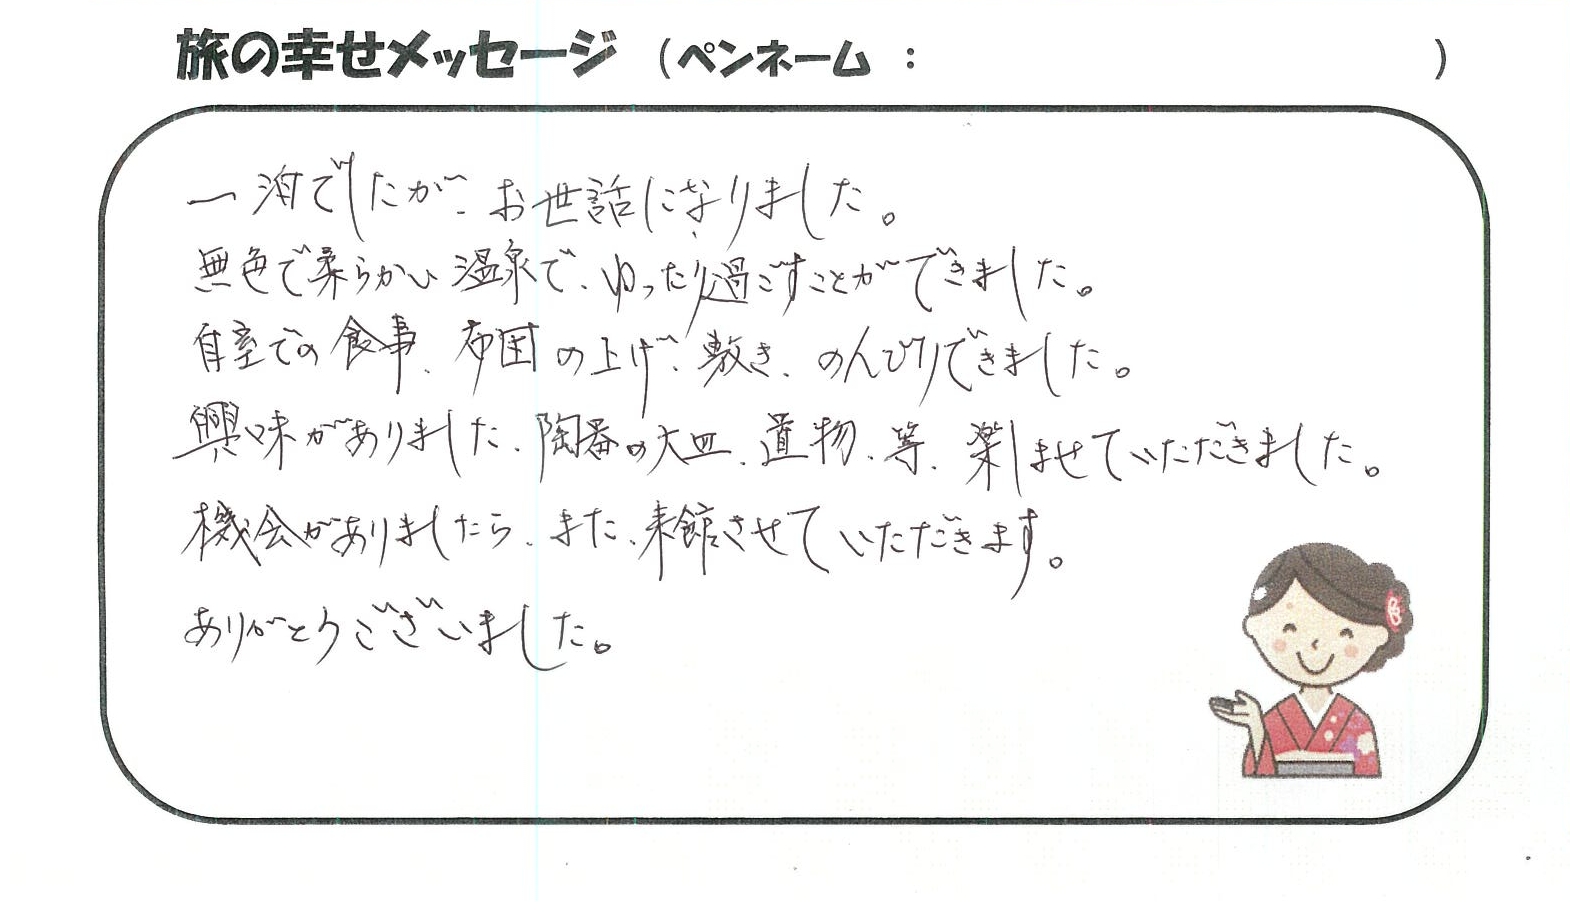 旅の幸せメッセージ (ペンネーム : )
一泊でしたが、お世話になりました。
無色で柔らかい温泉で、ゆったり過ごすことができました。
自室での食事、布団の上げ、敷き、のんびりできました。
興味がありました、陶器の大皿、置物、等、楽しませていただきました。
機会がありましたら、また、来館させていただきます。
ありがとうございました。